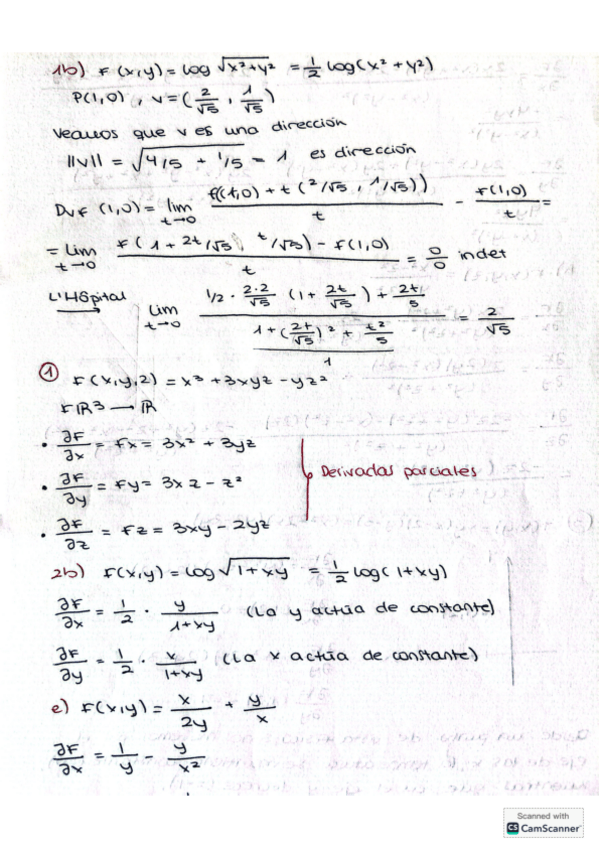 1b) F(x,y) = log √(x²+y²) = 1/2 log(x² + y²)
P(1,0) , v = (2/√5 , 1/√5)
Veamos que v es una dirección
||v|| = √(4/5 + 1/5) = 1 es dirección
DvF (1,0) = lim t→0 f((1,0) + t (2/√5 , 1/√5)) / t - F(1,0) / t =
= Lim t→0 (F(1 + 2t/√5, t/√5) - F(1,0)) / t = 0/0 indet
L'Hôpital → Lim t→0 (1/2 · 2·2/√5 (1 + 2t/√5) + 2t/5) / (1 + (2t/√5)² + t²/5) / 1 = 2/√5
① F(x,y,z) = x³ + 3xyz - yz²
F ℝ³ → ℝ
• ∂F/∂x = Fx = 3x² + 3yz
• ∂F/∂y = Fy = 3xz - z²
Derivadas parciales
• ∂F/∂z = Fz = 3xy - 2yz
2b) F(x,y) = log √(1+xy) = 1/2 log(1+xy)
∂F/∂x = 1/2 · y/(1+xy) (La y actúa de constante)
∂F/∂y = 1/2 · x/(1+xy) (La x actúa de constante)
e) F(x,y) = x/2y + y/x
∂F/∂x = 1/y - y/x²
Scanned with
CS CamScanner